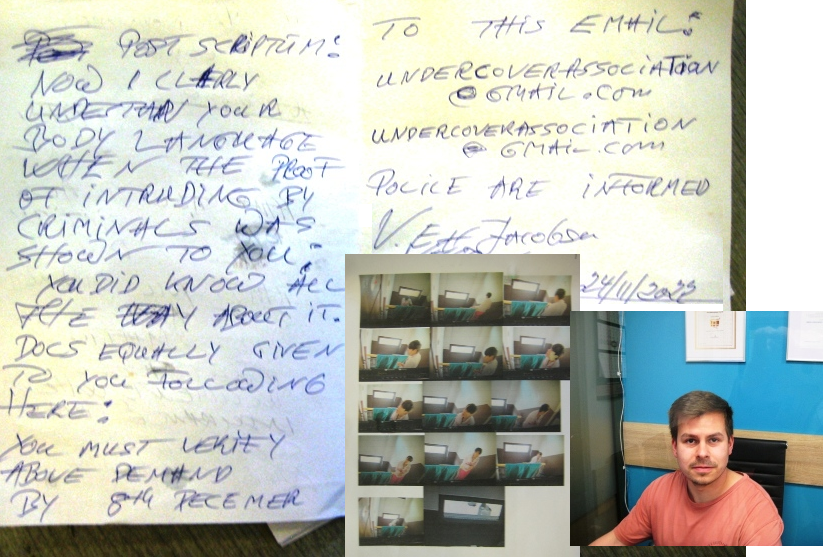 POST SCRIPTUM:
NOW I CLEARLY
YOUR
BODY LANGUAGE
WHEN THE PROOF
OF INTRUDING BY
CRIMINALS WAS
SHOWN TO YOU:
YOU DID KNOW ALL
THE WAY ABOUT IT.
DOCS EQUALLY GIVEN
TO YOU FOLLOWING
HERE:
YOU MUST VERIFY
ABOVE DEMAND
BY 8TH DECEMER
TO THIS EMAIL:
UNDERCOVERASSOCIATION
@GMAIL.COM
UNDERCOVERASSOCIATION
@ GMAIL.COM
POLICE ARE INFORMED
Jacobsen
24/11/2022